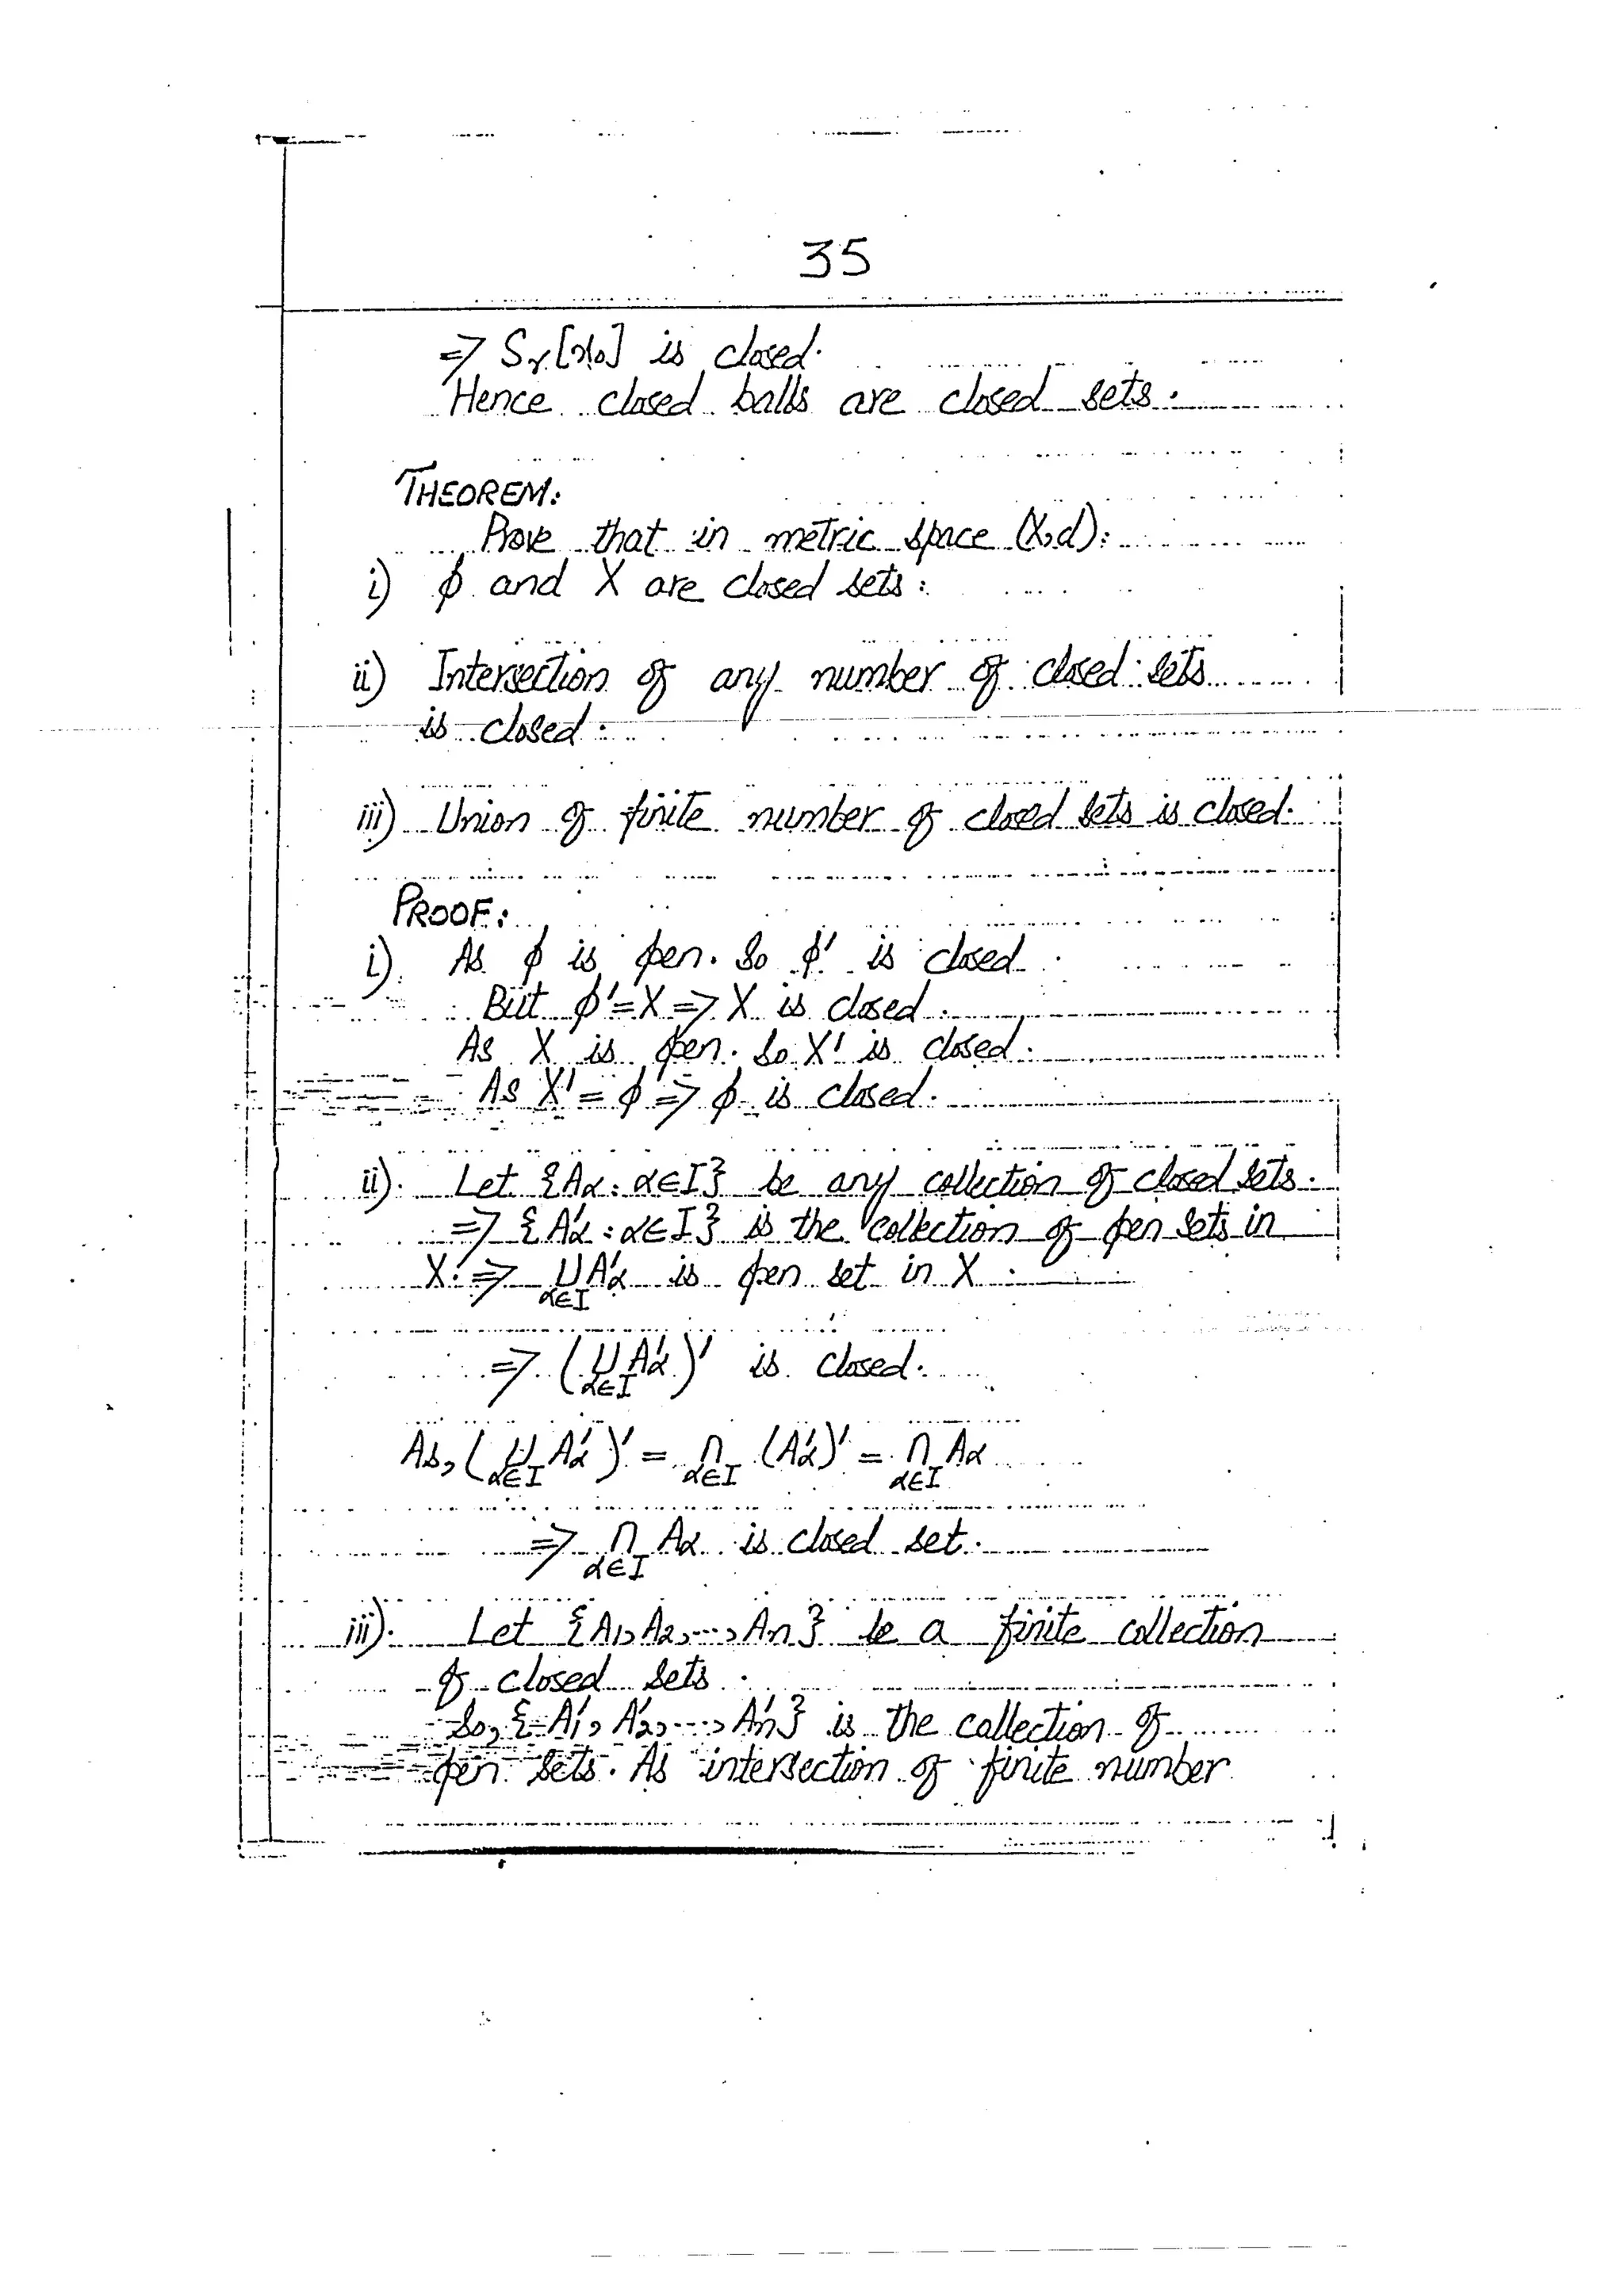 35
=> Sr[x0] is closed.
Hence closed balls are closed sets.
THEOREM:
Prove that in metric space (X,d):
i) ϕ and X are closed sets.
ii) Intersection of any number of closed sets
is closed.
iii) Union of finite number of closed sets is closed.
PROOF:
i). As ϕ is open. So ϕ' is closed.
But ϕ'=X => X is closed.
As X is open. So X' is closed.
As X' = ϕ => ϕ is closed.
ii). Let {Aα : α∈I} be any collection of closed sets.
=> {A'α : α∈I} is the collection of open sets in
X. => ∪ A'α is open set in X.
α∈I
=> (∪ A'α)' is closed.
α∈I
As, (∪ A'α)' = ∩ (A'α)' = ∩ Aα
α∈I α∈I α∈I
=> ∩ Aα is closed set.
α∈I
iii). Let {A1, A2, ..., An} be a finite collection
of closed sets.
So, {A'1, A'2, ..., A'n} is the collection of
open sets. As intersection of finite number